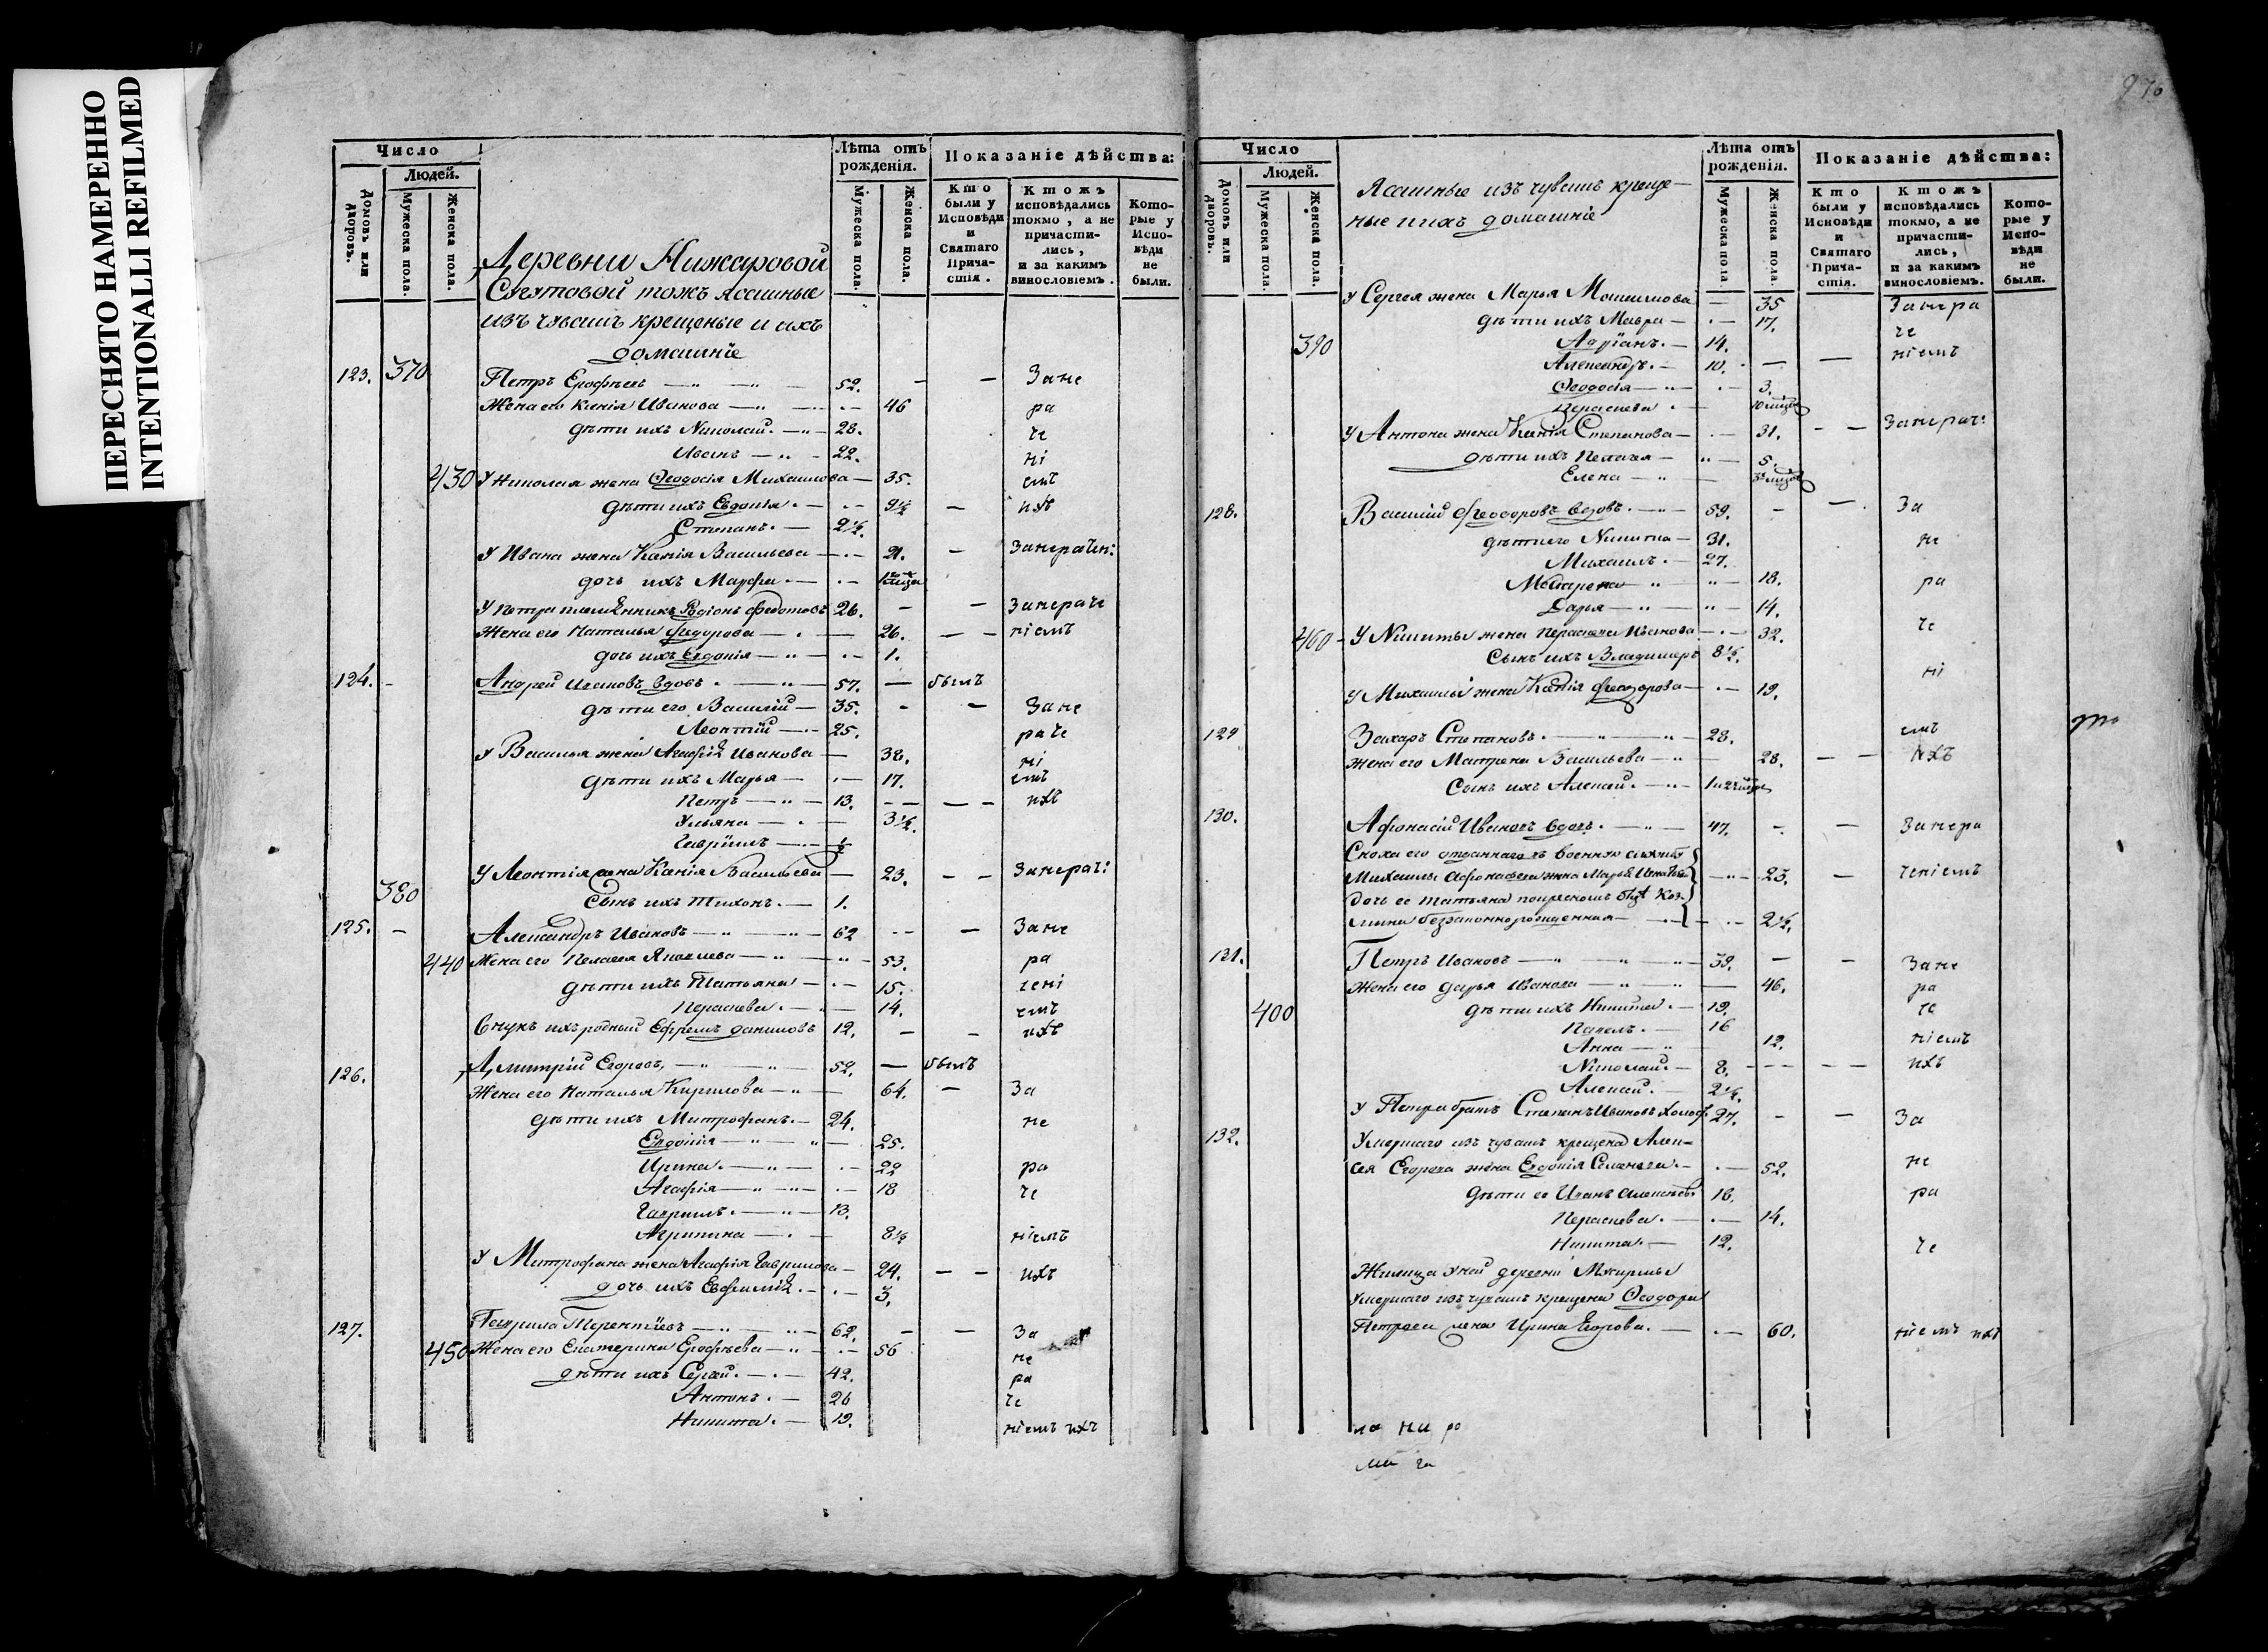 ПЕРЕСНЯТО НАМЕРЕННО
INTENTIONALLI REFILMED
Число
Людей.
Домовъ или дворовъ.
Мужеска пола.
Женска пола.
Лѣта отъ рожденія.
Мужеска пола.
Женска пола.
Показаніе дѣйства:
Кто были у Исповѣди и Святаго Причастія.
Ктожъ исповѣдались токмо, а не причастились, и за какимъ винословіемъ.
Которые у Исповѣди не были.
Деревни Нижаровой
тожъ ясашные
изъ чувашъ крещеные и ихъ
домашніе
123. 370 Петръ Ерофѣевъ 52. Зане
Жена его Ксенія Иванова 46 ра
дѣти ихъ Николай. 28. че
Иванъ 22. ні
430 У Николая жена Ѳеодосія Михаилова 35. емъ
дѣти ихъ Евдокія. 9½ ихъ
Степанъ. 2½.
У Ивана жена Ксенія Васильева 21. Занерачен:
дочь ихъ Марфа.
У Петра племянникъ Родіонъ Федотовъ 26. Занераче
Жена его Наталья Федорова 26. ніемъ
дочь ихъ Евдокія 1.
124. Андрей Ивановъ вдовъ. 57. былъ
дѣти его Василій 35. Зане
Леонтій 25. раче
У Василья жена Агафія Иванова 38. ні
дѣти ихъ Марья 17. емъ
Петръ 13. ихъ
Ульяна 3½.
Гавріилъ ½
У Леонтія жена Ксенія Васильева 23. Занерач:
380 Сынъ ихъ Тихонъ. 1.
125. Александръ Ивановъ 62 Зане
440 Жена его Пелагея Яковлева 53. ра
дѣти ихъ Татьяна 15. чені
Пераскева. 14. емъ
Внукъ ихъ родный Ефремъ Даниловъ 12. ихъ
126. Димитрій Егоровъ, 52. былъ
Жена его Наталья Кирилова 64. За
дѣти ихъ Митрофанъ. 24. не
Евдокія 25.
Ирина. 22 ра
Агафія 18 че
Гаврилъ. 13.
Агрипина 8½ ніемъ
У Митрофана жена Агафія Гаврилова 24. ихъ
дочь ихъ Евфимія. 3.
127. Гаврила Терентіевъ 62. За
450 Жена его Екатерина Ерофѣева 56 не
дѣти ихъ Сергей. 42. ра
Антонъ. 26 че
Никита. 19. ніемъ ихъ
270
Число
Людей.
Домовъ или дворовъ.
Мужеска пола.
Женска пола.
Ясашные изъ чувашъ креще-
ные и ихъ домашніе
Лѣта отъ рожденія.
Мужеска пола
Женска пола.
Показаніе дѣйства:
Кто были у Исповѣди и Святаго Причастія.
Ктожъ исповѣдались токмо, а не причастились, и за какимъ винословіемъ.
Которые у Исповѣди не были.
У Сергея жена Марья 35 Занера
дѣти ихъ Мавра 17. че
390 Адріанъ. 14. ніемъ
Александръ. 10.
Ѳеодосія 3.
Пераскева.
У Антона жена Ксенія Степанова 31. Занерач:
дѣти ихъ Пелагея 5.
Елена
128. Василій Ѳеодоровъ вдовъ. 59. За
дѣти его Никита 31. не
Михаилъ. 27.
18. ра
Дарья 14.
460 У Никиты жена Пераскева Иванова 32. че
Сынъ ихъ Владимеръ 8½.
У Михаилы жена Ксенія Ѳеодорова 19. ні
129 Захаръ Степановъ. 28. емъ
Жена его Матрена Васильева 28. ихъ
Сынъ ихъ Алексей.
130. Афонасій Ивановъ вдовъ. 47. Занера
Сноха его отданнаго въ военную службу
Михаилы Афонасьева жена Марья 23. ченіемъ
дочь ее Татьяна
беззаконнорожденная 2½.
131. Петръ Ивановъ 39. Зане
Жена его Дарья Иванова 46. ра
400 дѣти ихъ Никита. 19. че
Павелъ. 16
Анна 12. ніемъ
Николай. 8. ихъ
Алексей. 2½.
У Петра братъ Степанъ Ивановъ холос. 27. За
132. Умершаго изъ чувашъ крещена Алек-
сея Егорова жена Евдокія Семенова. 52. не
дѣти ее Иванъ Алексѣевъ 16. ра
Пераскева. 14.
Никита. 12. че
деревни
Умершаго изъ чувашъ крещена Ѳеодора
Петрова жена Ирина Егорова. 60. ніемъ ихъ